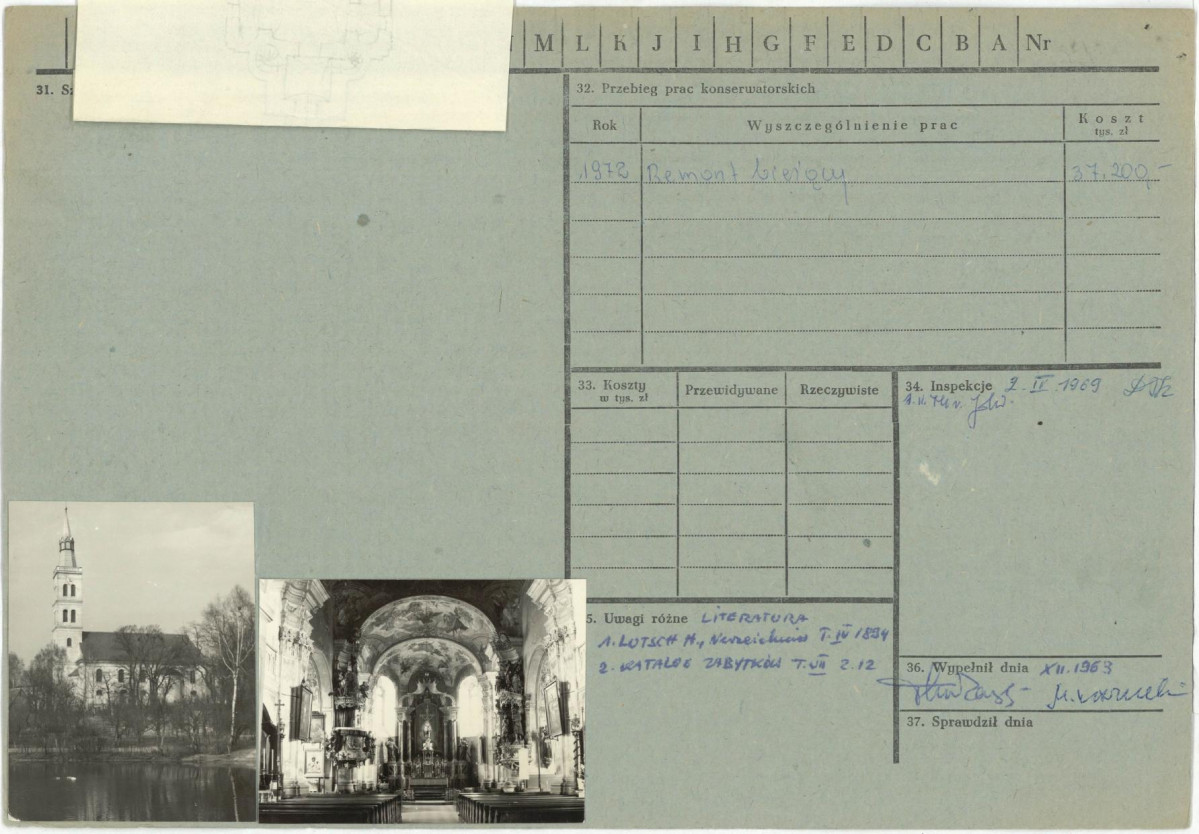 M L K J I H G F E D C B A Nr
31. S
32. Przebieg prac konserwatorskich
Rok Wyszczególnienie prac Koszt
tys. zł
1972 Remont bieżący 37.200,-
33. Koszty
w tys. zł
Przewidywane Rzeczywiste
34. Inspekcje 2. IV. 1969
5. Uwagi różne LITERATURA
1. LUTSCH H., Verzeichnis T. IV 1894
2. KATALOG ZABYTKÓW T. VII Z. 12
36. Wypełnił dnia XII. 1963
37. Sprawdził dnia